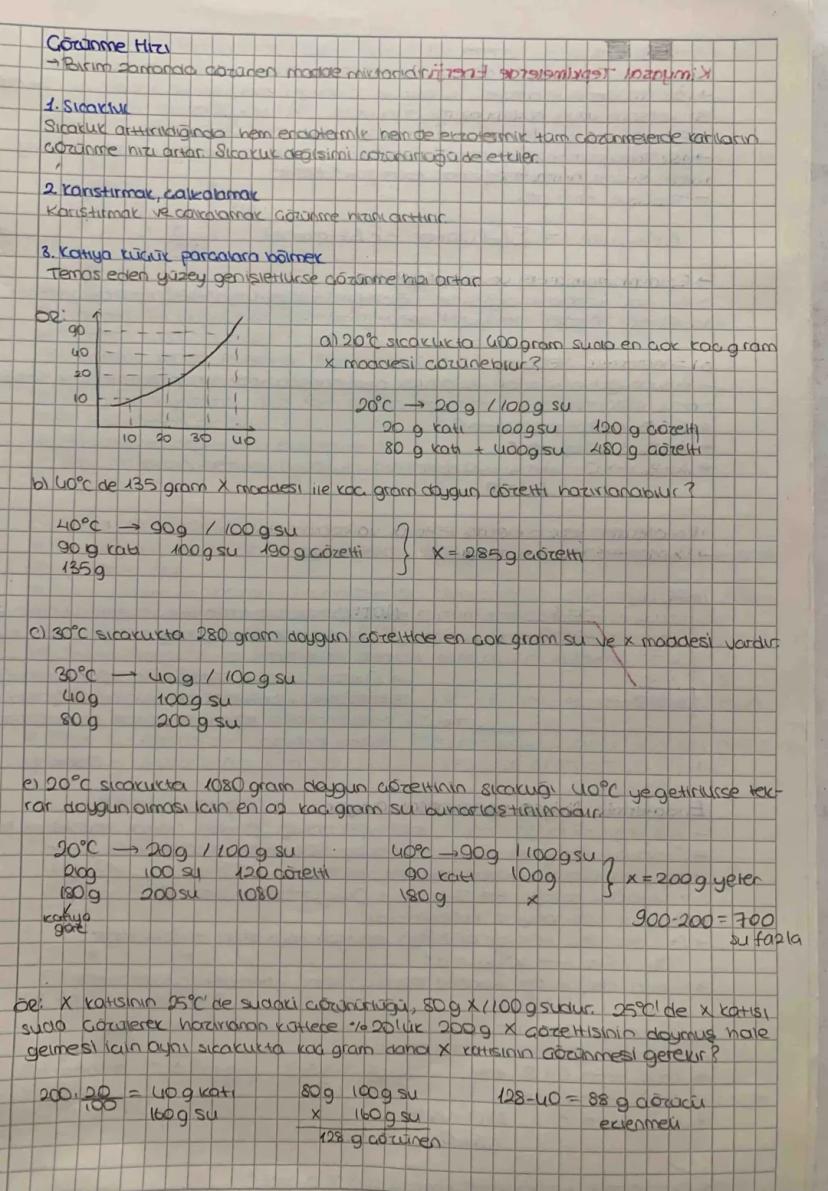 Çözünme Hızı
→ Birim zamanda çözünen madde miktarıdır.
1. Sıcaklık
Sıcaklık arttırıldığında hem endotermik hem de ekzotermik tam çözünmelerde katıların
çözünme hızı artar. Sıcaklık değişimi çözünürlüğü de etkiler.
2. Karıştırmak, çalkalamak
Karıştırmak ve çalkalamak çözünme hızını arttırır.
3. Katıyı küçük parçalara bölmek
Temas eden yüzey genişletilirse çözünme hızı artar
ör:
90
40
20
10
10 20 30 40
a) 20°C sıcaklıkta 400 gram suda en çok kaç gram
x maddesi çözünebilir?
20°C → 20g / 100g su
20 g katı 100g su 120 g çözelti
80 g katı + 400g su 480 g çözelti
b) 40°C de 135 gram X maddesi ile kaç gram doygun çözelti hazırlanabilir?
40°C → 90g / 100g su
90 g katı 100g su 190 g çözelti } x = 285 g çözelti
135g
c) 30°C sıcaklıkta 280 gram doygun çözeltide en çok gram su ve x maddesi vardır.
30°C → 40g / 100g su
40g 100g su
80 g 200 g su
e) 20°C sıcaklıkta 1080 gram doygun çözeltinin sıcaklığı 40°C ye getirilirse tek-
rar doygun olması için en az kaç gram su buharlaştırılmalıdır.
20°C → 20g / 100 g su 40°C → 90g / 100g su
20g 100 su 120 çözelti 90 katı 100g } x = 200 g yeter
180g 200 su 1080 180 g x
katıya
göre
900-200 = 700
su fazla
ör: X katısının 25°C'de sudaki çözünürlüğü, 80g X / 100g sudur. 25°C'de x katısı
suda çözülerek hazırlanan kütlece %20'lik 200g X çözeltisinin doymuş hale
gelmesi için aynı sıcaklıkta kaç gram daha X katısının çözünmesi gerekir?
200 . 20/100 = 40g katı 80g 100g su 128-40 = 88 g çözücü
160g su x 160g su eklenmeli
128 g çözünen